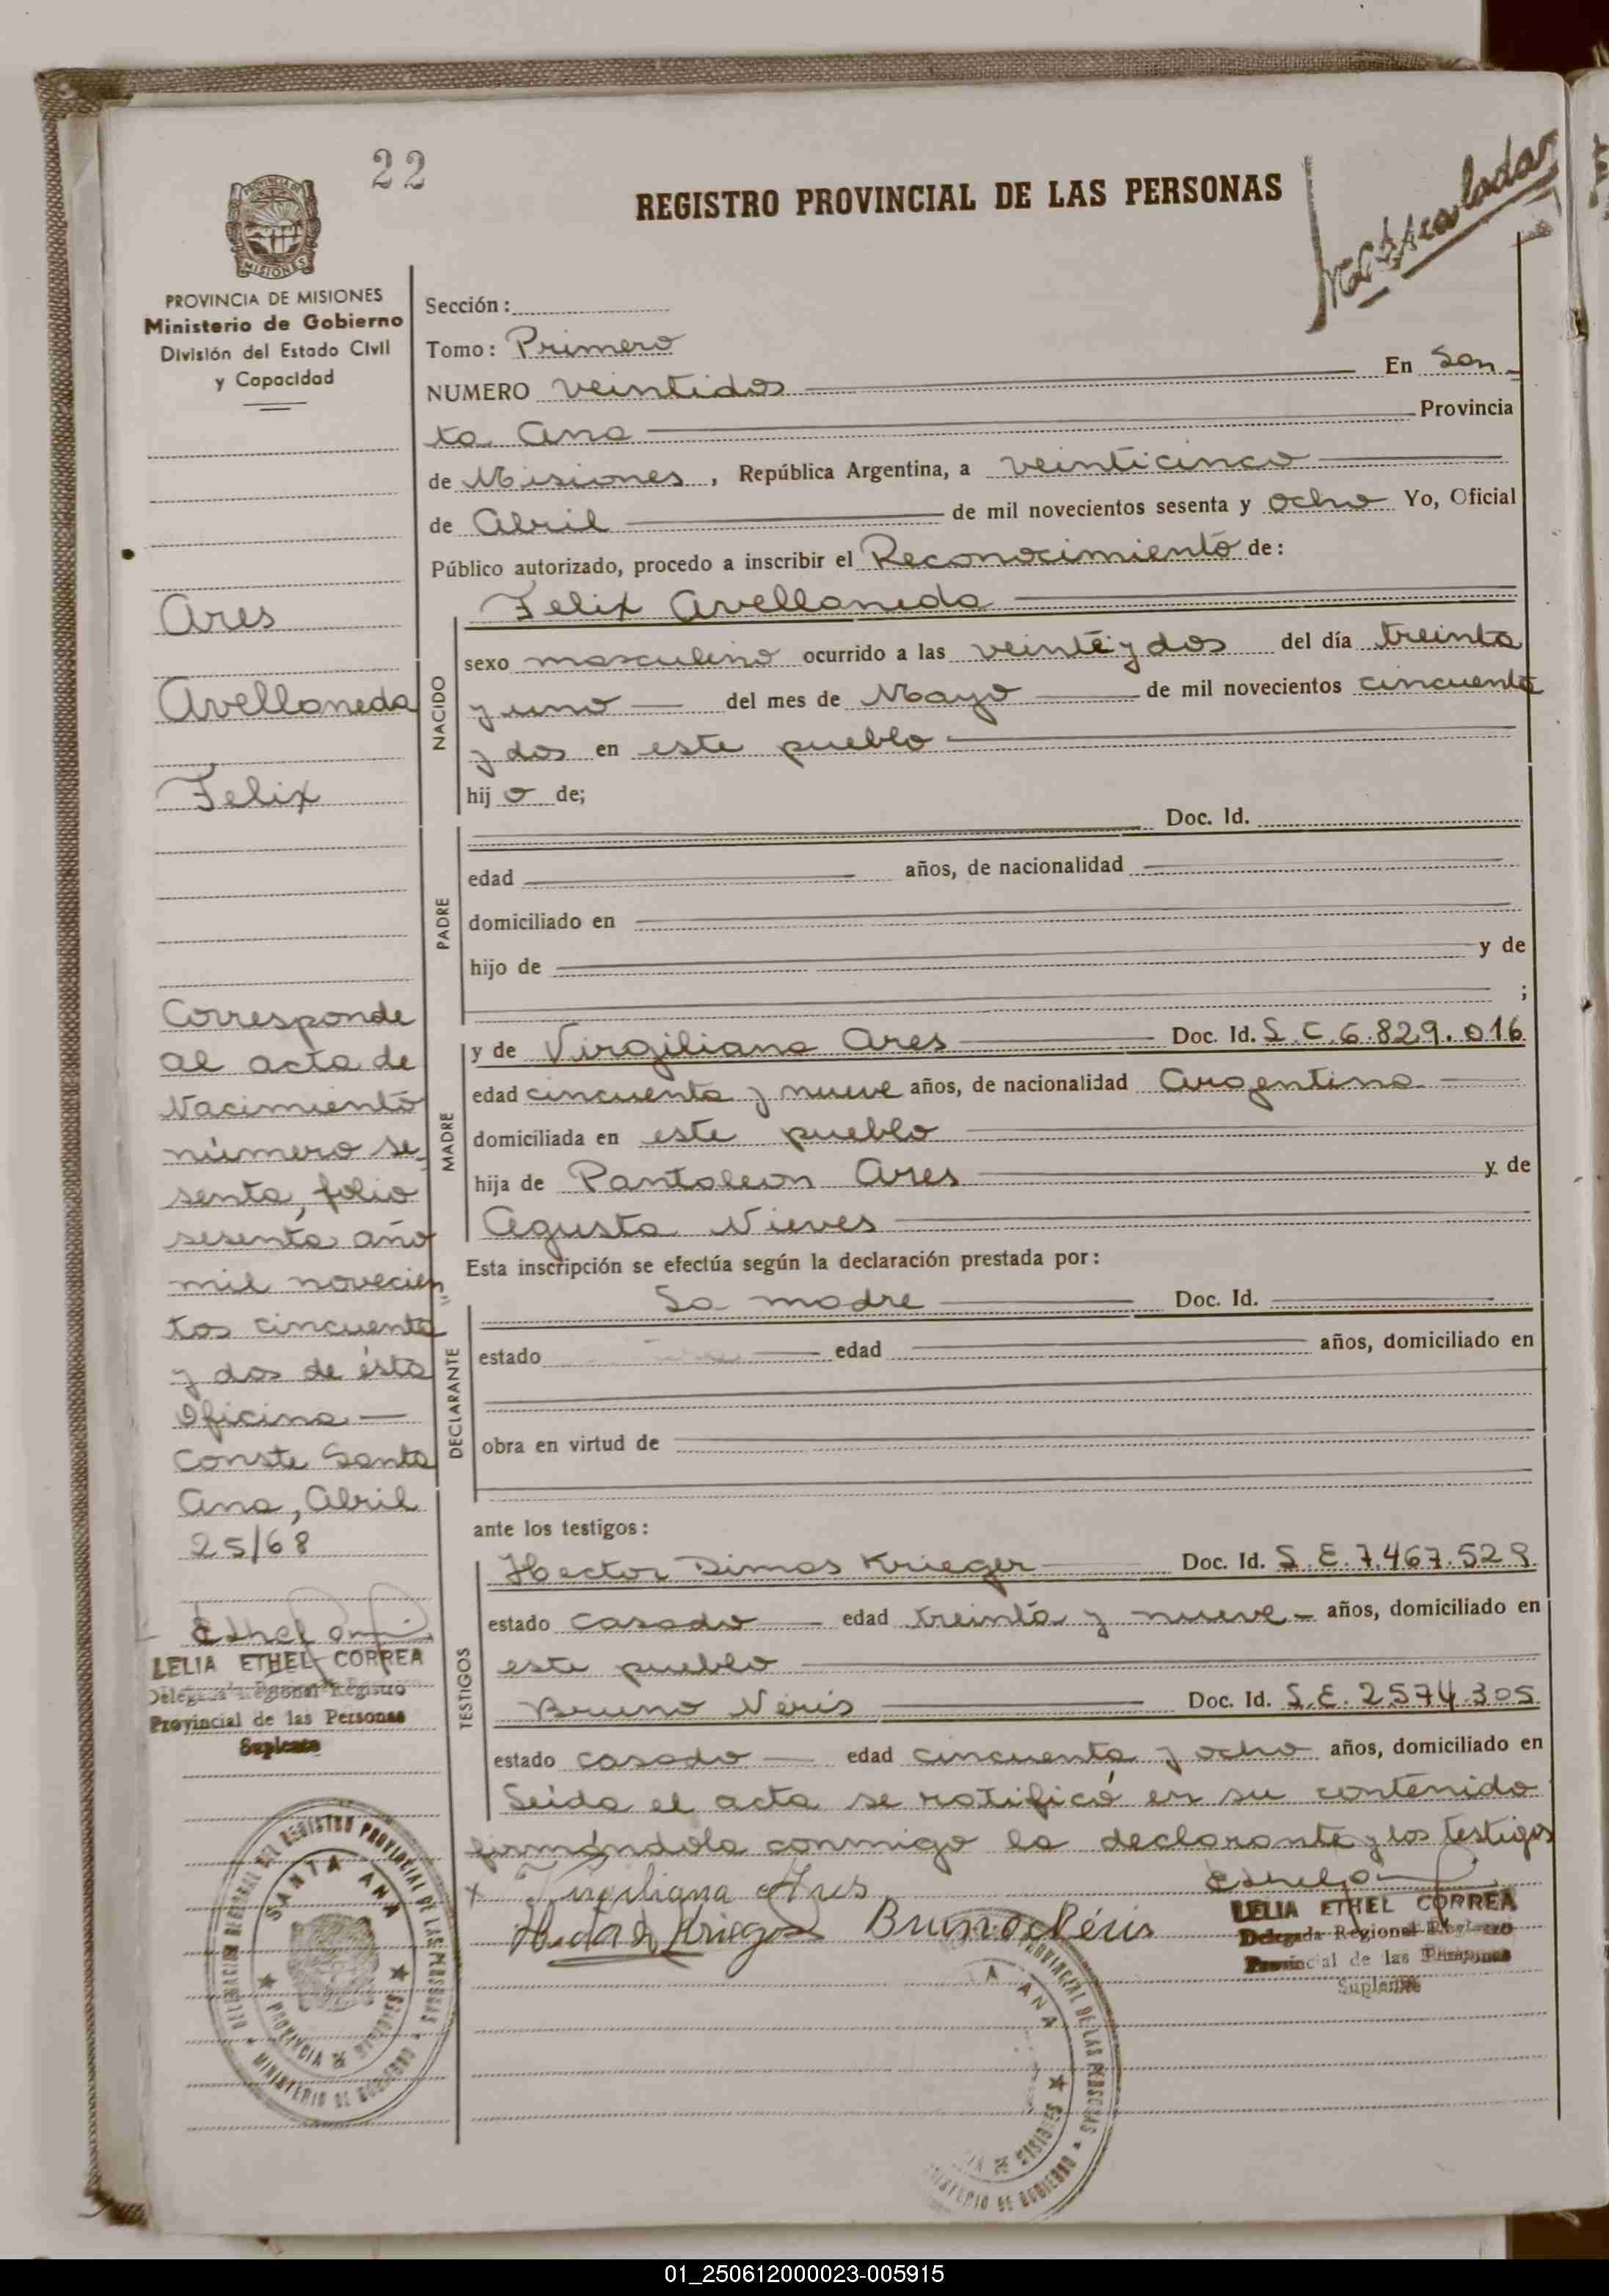 22
REGISTRO PROVINCIAL DE LAS PERSONAS
PROVINCIA DE MISIONES
MISIONES
PROVINCIA DE MISIONES
Ministerio de Gobierno
División del Estado Civil
y Capacidad
Sección:
Tomo: Primero
NUMERO veintidos En San-
ta Ana Provincia
de Misiones, República Argentina, a veinticinco
de Abril de mil novecientos sesenta y ocho Yo, Oficial
Público autorizado, procedo a inscribir el Reconocimiento de:
NACIDO
Felix Avellaneda
sexo masculino ocurrido a las veinte y dos del día treinta
y uno del mes de Mayo de mil novecientos cincuenta
y dos en este pueblo
hijo de;
PADRE
Doc. Id.
edad años, de nacionalidad
domiciliado en
hijo de y de
;
MADRE
y de Virgiliana Ares Doc. Id. L.C. 6.829.016
edad cincuenta y nueve años, de nacionalidad Argentina
domiciliada en este pueblo
hija de Pantaleon Ares y de
Agusta Nieves
Esta inscripción se efectúa según la declaración prestada por:
DECLARANTE
La madre Doc. Id.
estado edad años, domiciliado en
obra en virtud de
ante los testigos:
TESTIGOS
Hector Dimas Krieger Doc. Id. L.E. 7.467.529
estado casado edad treinta y nueve - años, domiciliado en
este pueblo
Bruno Néris Doc. Id. L.E. 2574.305
estado casado edad cincuenta y ocho años, domiciliado en
Leida el acta se ratificó en su contenido
firmándola conmigo la declarante y los testigos
x Virgiliana Ares
Bruno Néris
LELIA ETHEL CORREA
Delegada Regional Registro
Provincial de las Personas
Suplente
Ares
Avellaneda
Felix
Corresponde
al acta de
Nacimiento
número se-
senta, folio
sesenta año
mil novecien"
tos cincuenta
y dos de ésta
Oficina —
Conste Santa
Ana, Abril
25/68
LELIA ETHEL CORREA
Delegada Regional Registro
Provincial de las Personas
Suplente
DELEGACION REGIONAL DEL REGISTRO PROVINCIAL DE LAS PERSONAS
SANTA ANA
PROVINCIA DE MISIONES
MINISTERIO DE GOBIERNO
PROVINCIAL DE LAS PERSONAS
A ANA
MISIONES
MINISTERIO DE GOBIERNO
01_250612000023-005915